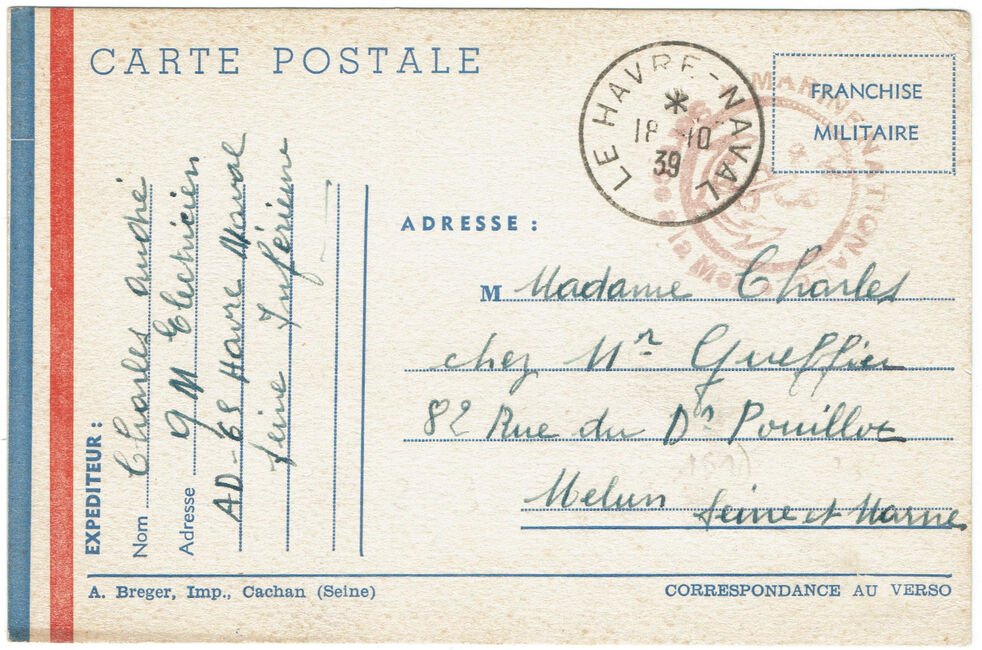 CARTE POSTALE
LE HAVRE-NAVAL
18-10
39
MARINE NATIONALE
Service à la Mer
FRANCHISE
MILITAIRE
ADRESSE :
M Madame Charles
chez Mr Gueffier
82 Rue du Dr Pouillot
Melun Seine et Marne
EXPEDITEUR :
Nom Charles André
Adresse QM Electricien
AD-69 Havre Naval
Seine Inférieure
A. Breger, Imp., Cachan (Seine)
CORRESPONDANCE AU VERSO